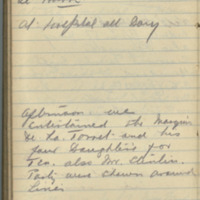 At Hospital all Day
Afternoon we
Entertained the Marquis
de la Torret and his
four Daughters for
Tea. also Mr.
Party were shewn around
lines